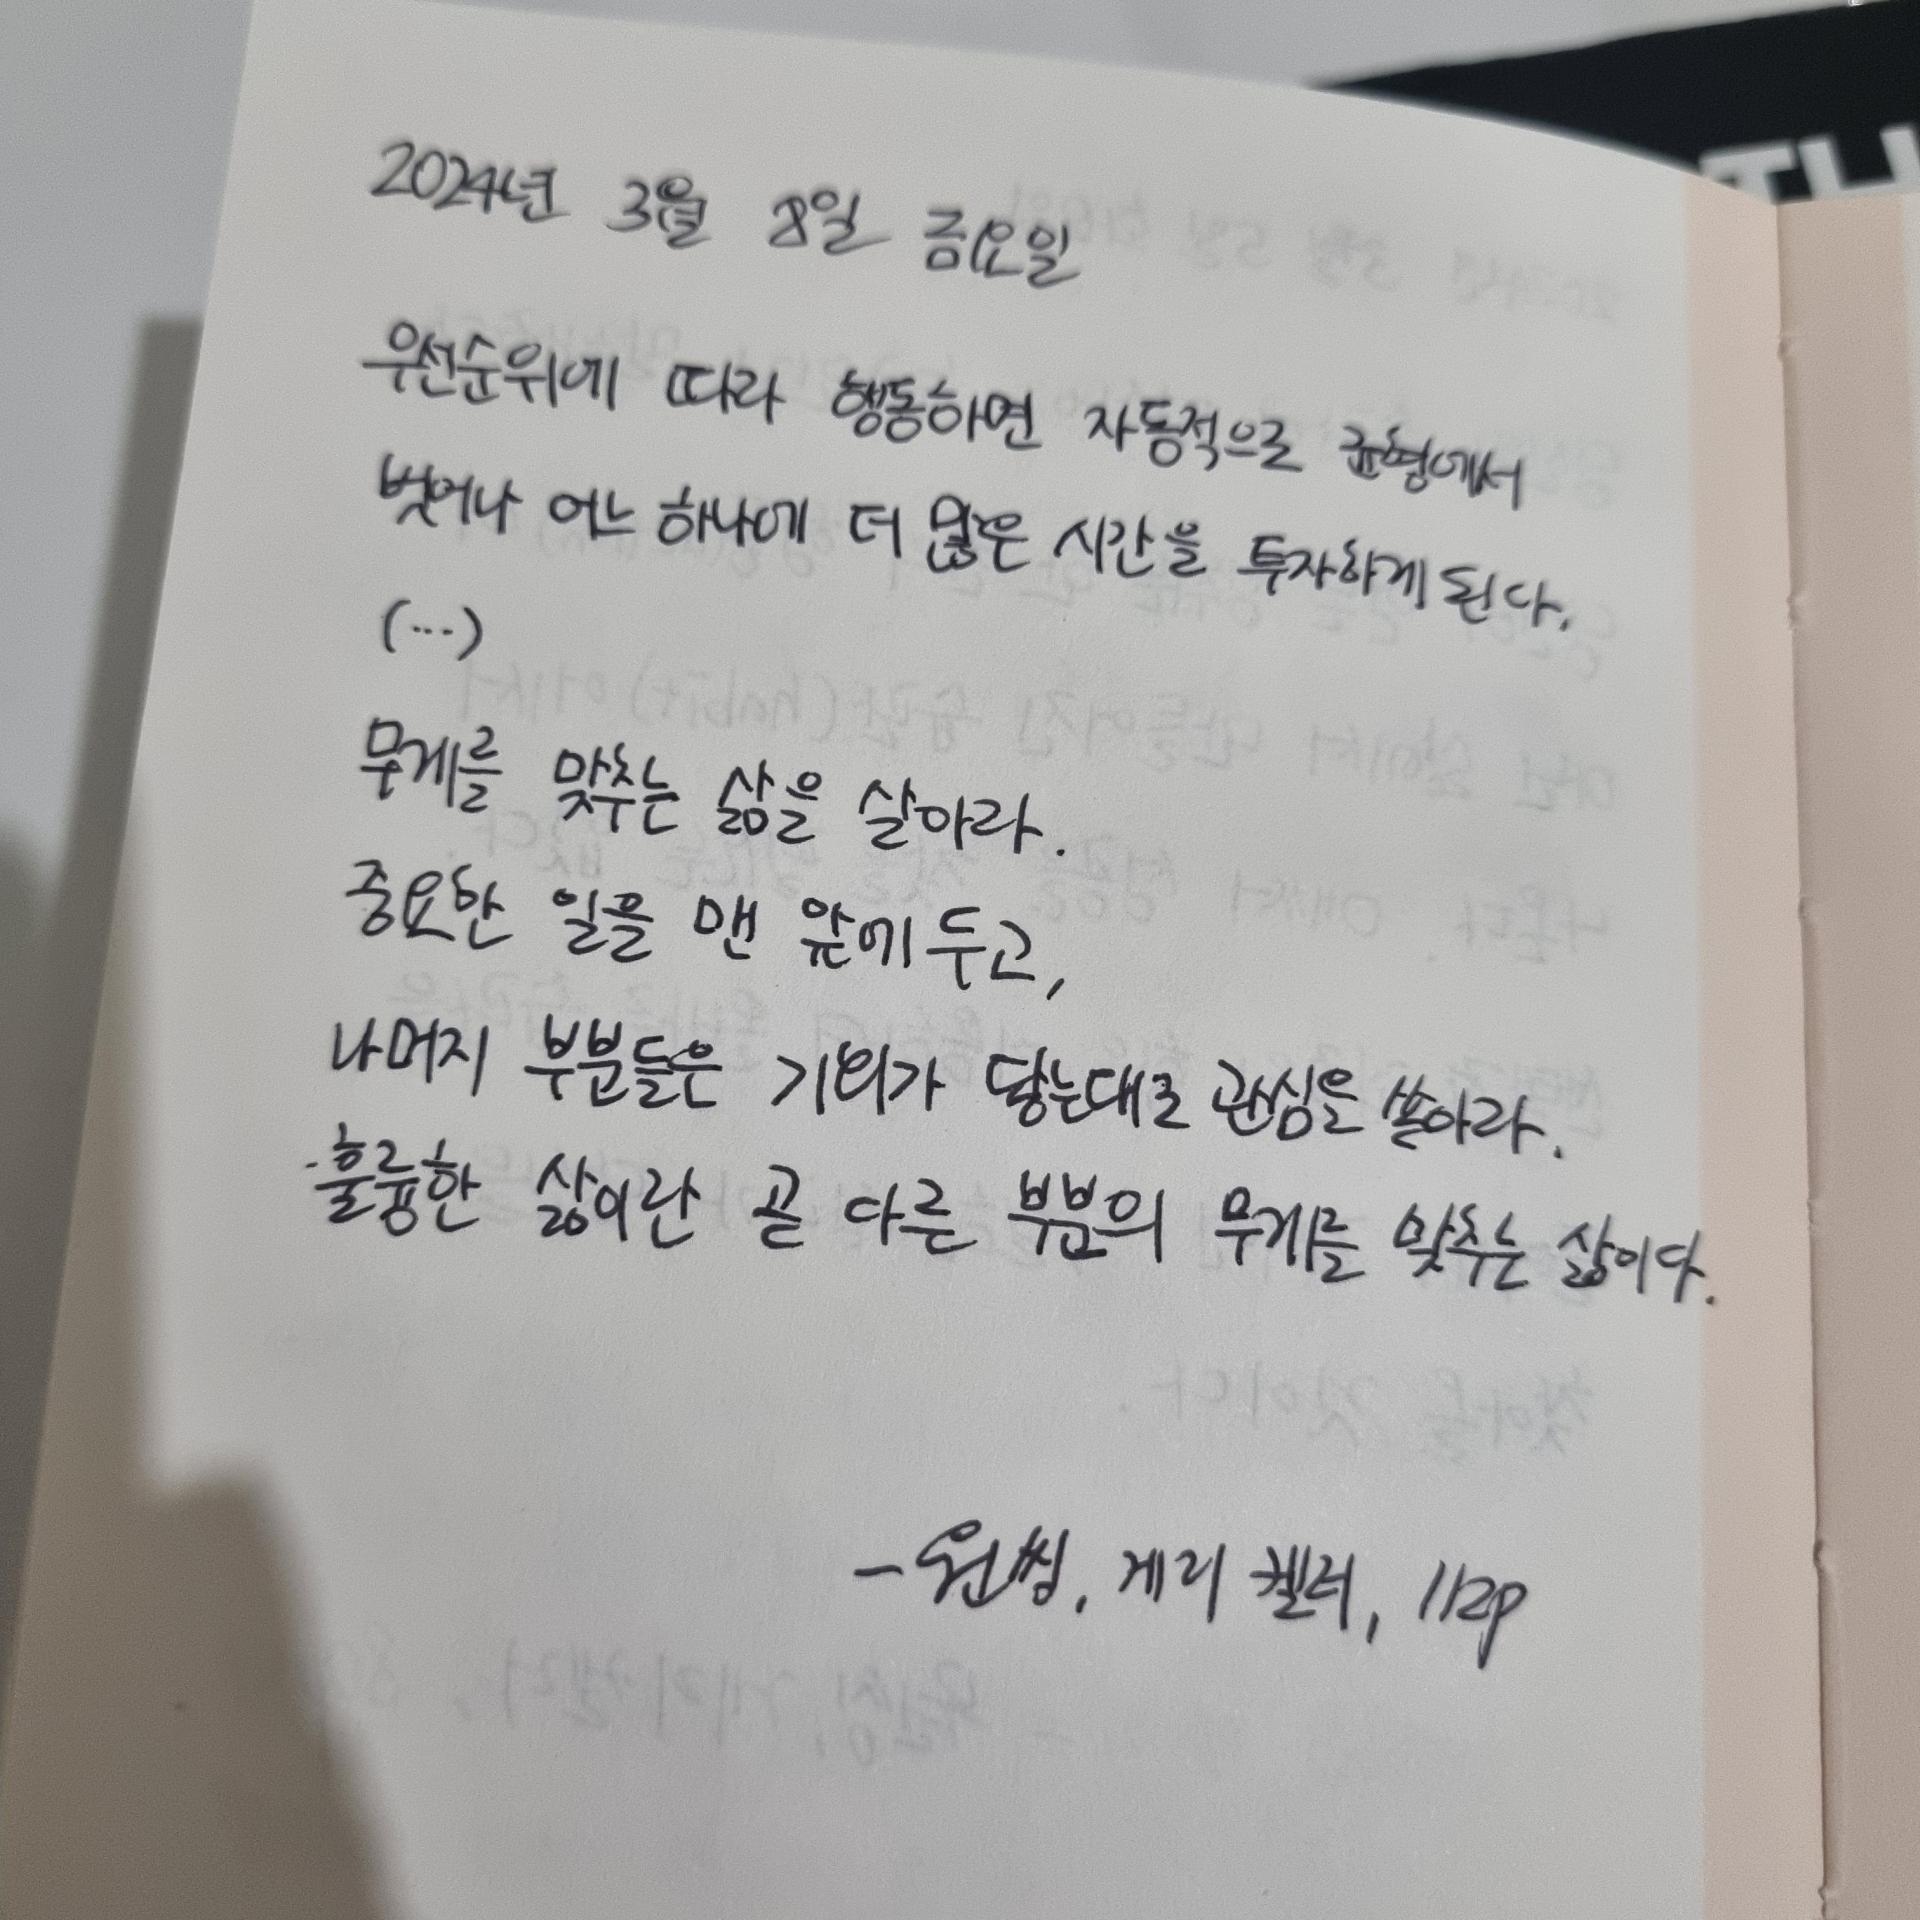 2024년 3월 8일 금요일
우선순위에 따라 행동하면 자동적으로 균형에서
벗어나 어느 하나에 더 많은 시간을 투자하게 된다.
(...)
무게를 맞추는 삶을 살아라.
중요한 일을 맨 앞에 두고,
나머지 부분들은 기회가 닿는대로 관심을 쏟아라.
훌륭한 삶이란 곧 다른 부분의 무게를 맞추는 삶이다.
- 원씽, 게리 켈러, 112p